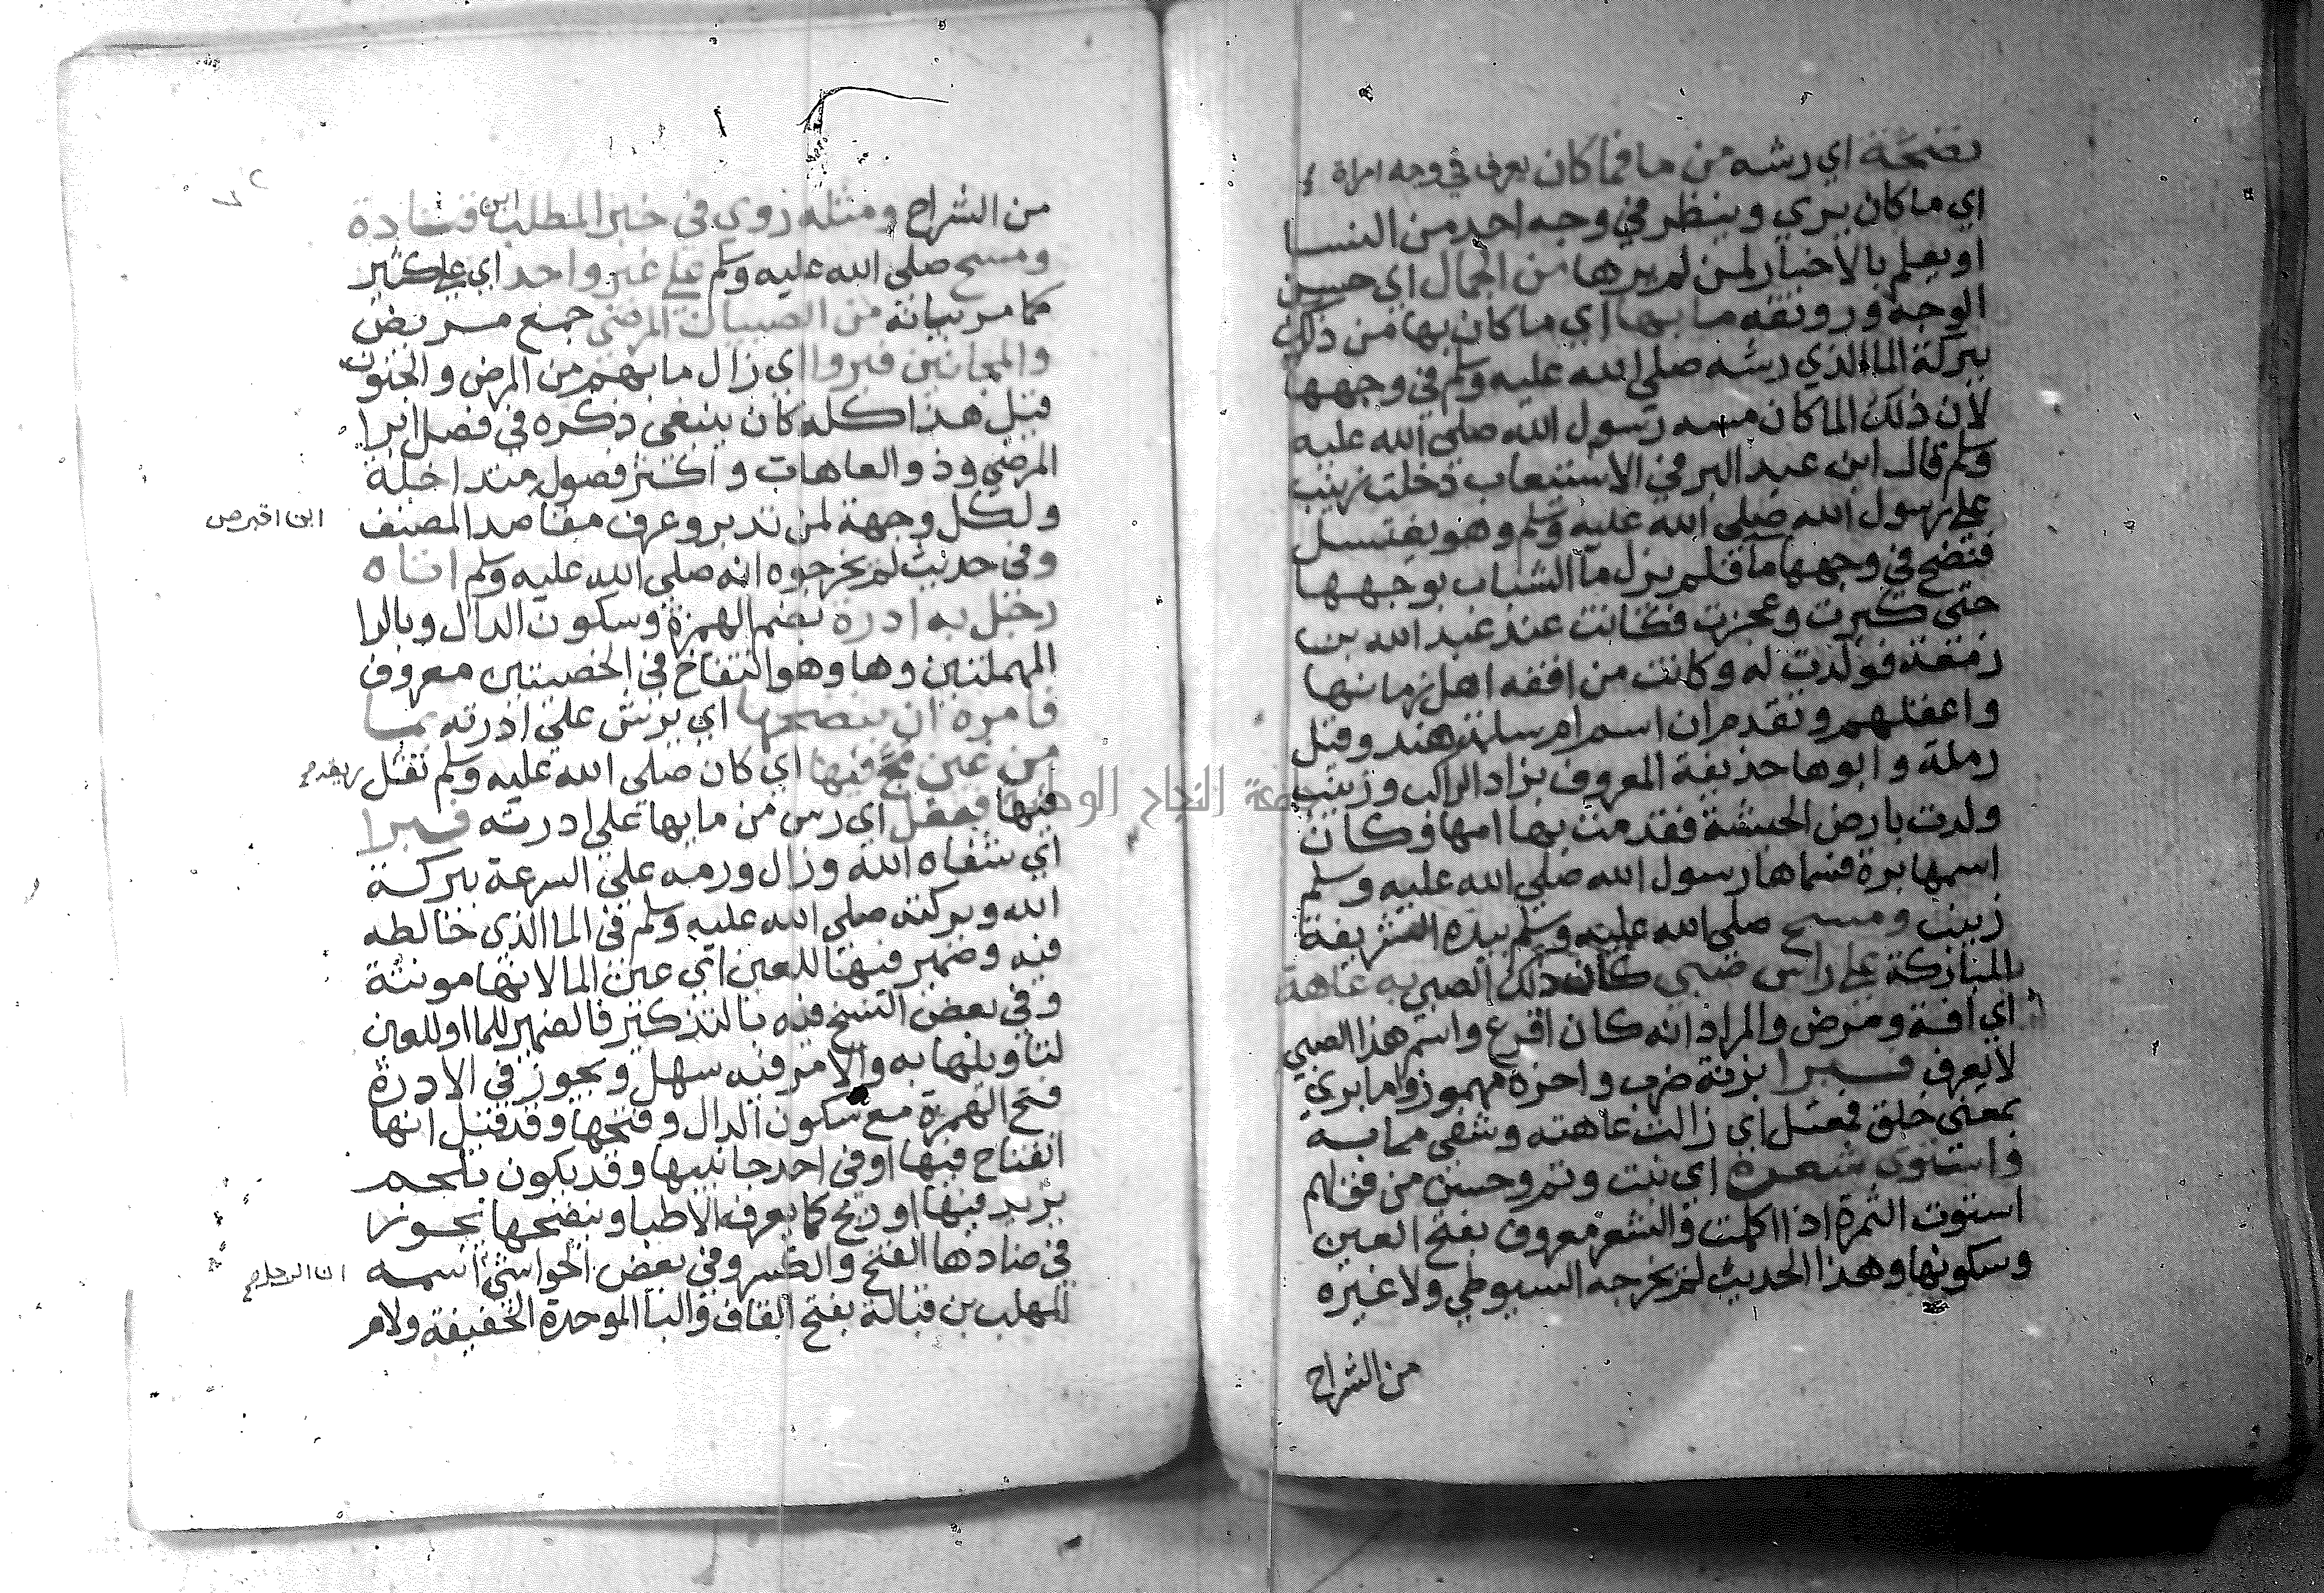 نضحة اي رشه من ما فما كان يعرف في وجه امراة
اي ما كان يري وينظر في وجه احد من النسا
او يعلم بالاخبار لمن لم يرها من الجمال اي حسن
الوجه ورونقه ما بها اي ما كان بها من ذلك
ببركة الما الذي رشه صلي الله عليه وسلم في وجهها
لان ذلك الما كان مسه رسول الله صلي الله عليه
وسلم قال ابن عبد البر في الاستيعاب دخلت زينب
علي رسول الله صلي الله عليه وسلم وهو يغتسل
فنضح في وجهها ما فلم يزل ما الشباب بوجهها
حتي كبرت وعجزت فكانت عند عبد الله بن
زمعة فولدت له وكانت من افقه اهل زمانها
واعقلهم وتقدم ان اسم ام سلمة هند وقيل
رملة وابوها حذيفة المعروف بزاد الراكب وزينب
ولدت بارض الحبشة فقدمت بها امها وكان
اسمها برة فسماها رسول الله صلي الله عليه وسلم
زينب ومسح صلي الله عليه وسلم بيده الشريفة
المباركة علي راس صبي كان ذلك الصبي به عاهة
اي افة ومرض والمراد انه كان اقرع واسم هذا الصبي
لا يعرف فبرا بزنة ضرب واخره مهموز واما بري
بمعني خلق فمعتل اي زالت عاهته وشفي مما به
واستوي شعره اي نبت وتم وحسن من قولهم
استوت الثمرة اذا اكلت والشعر معروف بفتح العين
وسكونها وهذا الحديث لم يخرجه السيوطي ولا غيره
من الشراح
من الشراح ومثله روي في خبر المطلب ابن قتادة
ومسح صلي الله عليه وسلم علي غير واحد اي علي كثير
كما مر بيانه من الصبيان المرضي جمع مريض
والمجانين فبروا اي زال ما بهم من المرض والجنون
قيل هذا كله كان ينبغي ذكره في فصل ابرا
المرضي وذو العاهات واكثر فصوله متداخلة
ولكل وجهة لمن تدبر وعرف مقاصد المصنف
ابن اقبرص
وفي حديث لم يخرجوه انه صلي الله عليه وسلم اتاه
رجل به ادرة بضم الهمزة وسكون الدال وبالرا
المهملتين وها وهو انتفاخ في الخصيتين معروف
فامره ان ينضحها اي يرش علي ادرته بما
من عين مج فيها اي كان صلي الله عليه وسلم تفل
فيها ففعل اي رش من مايها علي ادرته فبرا
اي شفاه الله وزال ورمه علي السرعة ببركة
الله وبركته صلي الله عليه وسلم في الما الذي خالطه
فيه وضمير فيها للعين اي عين الما لانها مونثة
وفي بعض النسخ فيه بالتذكير فالضمير للما او للعين
لتاويلها به والامر فيه سهل ويجوز في الادرة
فتح الهمزة مع سكون الدال وفتحها وقد قيل انها
انفتاح فيها او في احد جانبيها وقد يكون بلحم
يزيد فيها او ريح كما يعرفه الاطبا وينضحها يجوز
في ضادها الفتح والكسر وفي بعض الحواشي اسمه
المهلب بن قبالة بفتح القاف والبا الموحدة الخفيفة ولام
جامعة النجاح الوطنية